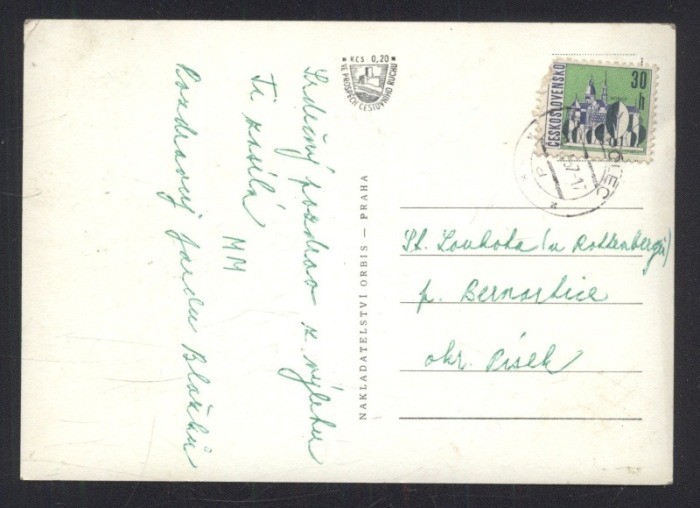 Srdečný pozdrav z výletu
Ti zasílá
MM
Pozdravuj
KČS 0,20
VE PROSPĚCH CESTOVNÍHO RUCHU
NAKLADATELSTVÍ ORBIS — PRAHA
ČESKOSLOVENSKO
30
h
St. Loukota (u Rottenbergů)
p. Bernartice
okr. Písek